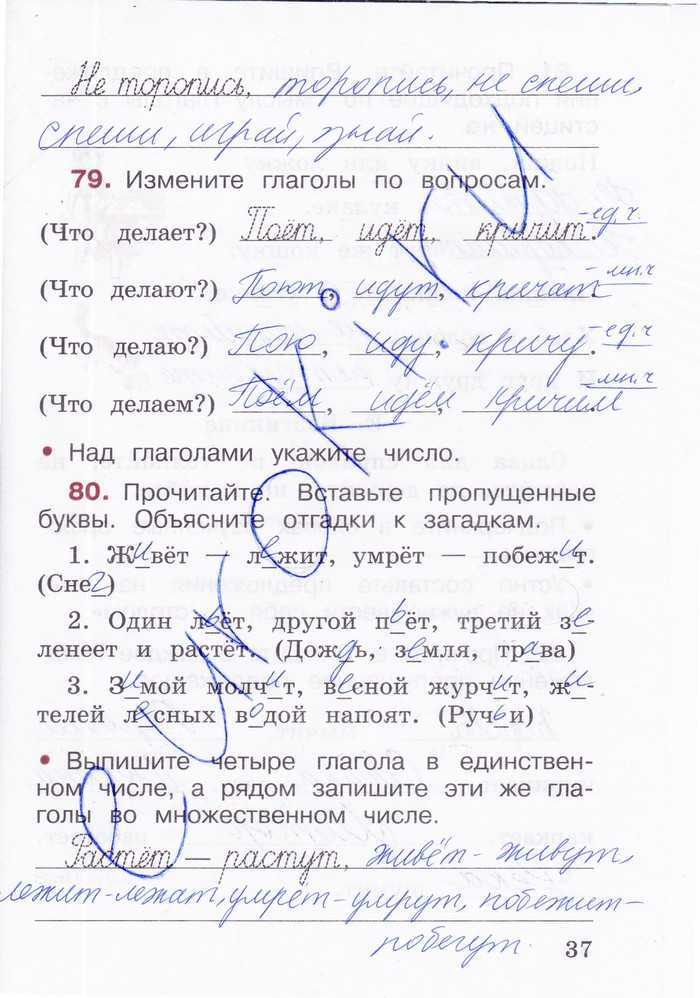 Не торопись, торопись, не спеши,
спеши, играй, знай.
79. Измените глаголы по вопросам.
(Что делает?) Поёт, идёт, кричит. ед.ч.
(Что делают?) Поют, идут, кричат. мн.ч
(Что делаю?) Пою, иду, кричу. ед.ч
(Что делаем?) Поём, идём, кричим мн.ч
• Над глаголами укажите число.
80. Прочитайте. Вставьте пропущенные
буквы. Объясните отгадки к загадкам.
1. Живёт — лежит, умрёт — побежит.
(Снег)
2. Один льёт, другой пьёт, третий зе-
ленеет и растёт. (Дождь, земля, трава)
3. Зимой молчит, весной журчит, жи-
телей лесных водой напоят. (Ручьи)
• Выпишите четыре глагола в единствен-
ном числе, а рядом запишите эти же гла-
голы во множественном числе.
Растёт — растут, живёт - живут,
лежит-лежат, умрёт-умрут, побежит-
побегут.
37